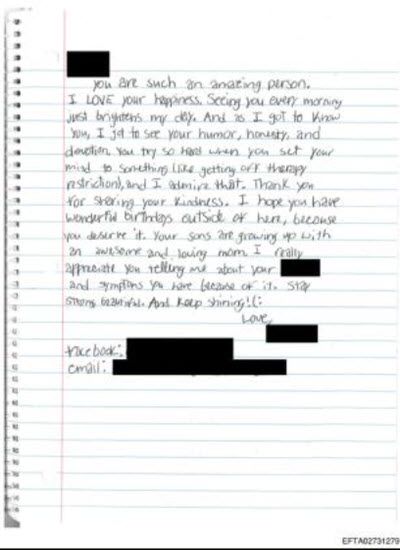 you are such an amazing person.
I LOVE your happiness. Seeing you every morning
just brightens my day. And as I got to know
you, I got to see your humor, honesty, and
devotion. You try so hard when you set your
mind to something (like getting off therapy
restriction), and I admire that. Thank you
for sharing your kindness. I hope you have
wonderful birthdays outside of here, because
you deserve it. Your sons are growing up with
an awesome and loving mom. I really
appreciate you telling me about your
and symptoms you have because of it. Stay
strong beautiful. And keep shining! (:
Love,
facebook:
email:
EFTA02731279